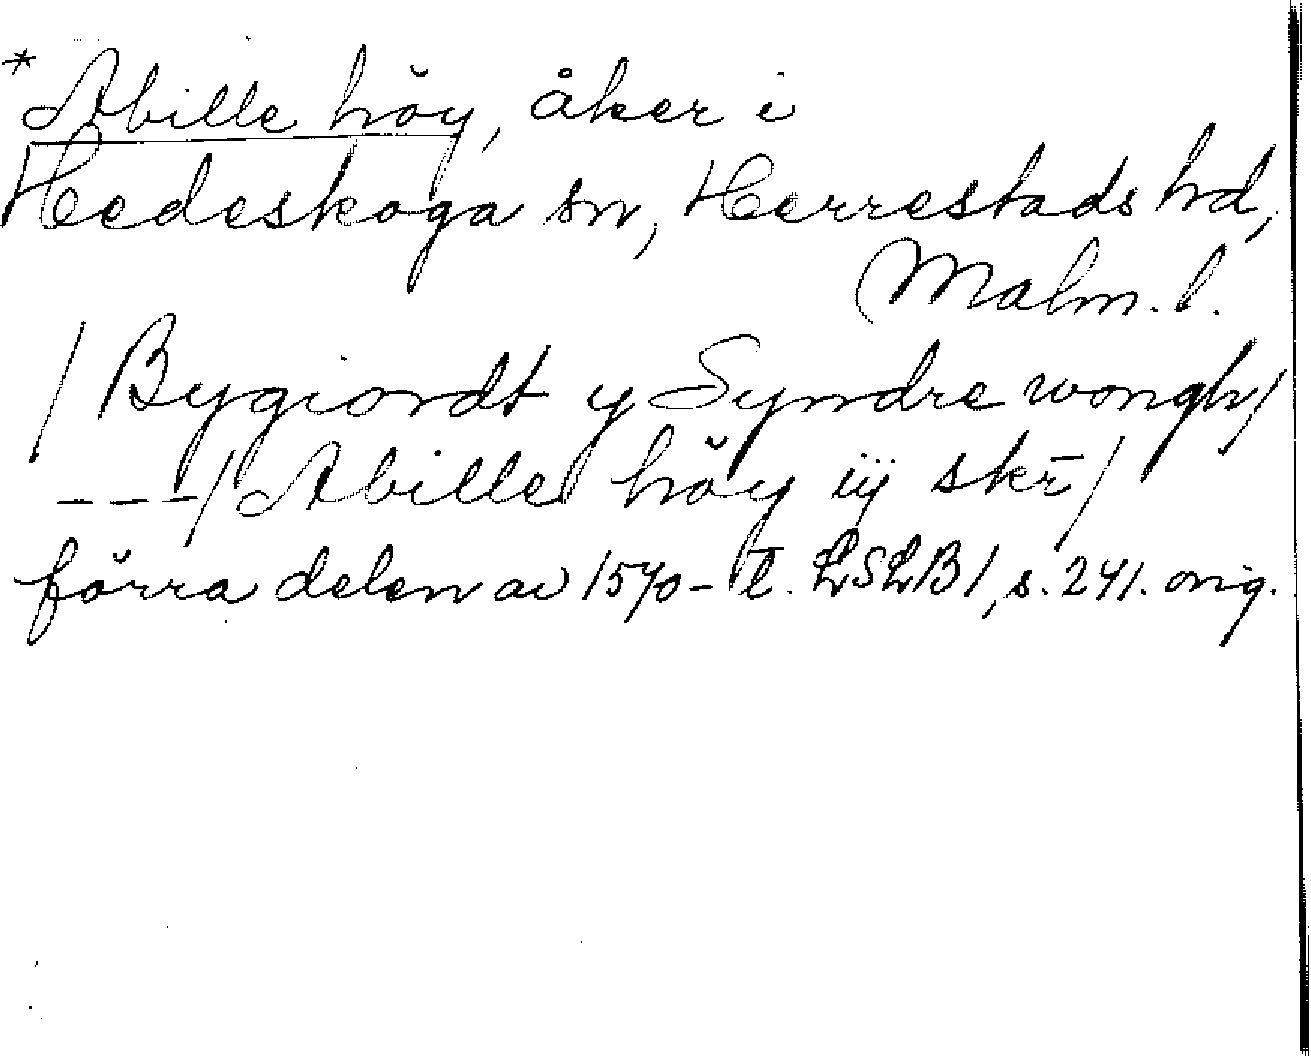 *Abille höy, åker i
Hedeskoga sn, Herrestads hd,
Malm. l.
/ Bygiordt y Syndre wongh /
---/ Abille höy iij skr̄ /
förra delen av 1570-t. LSLB 1, s. 241. orig.